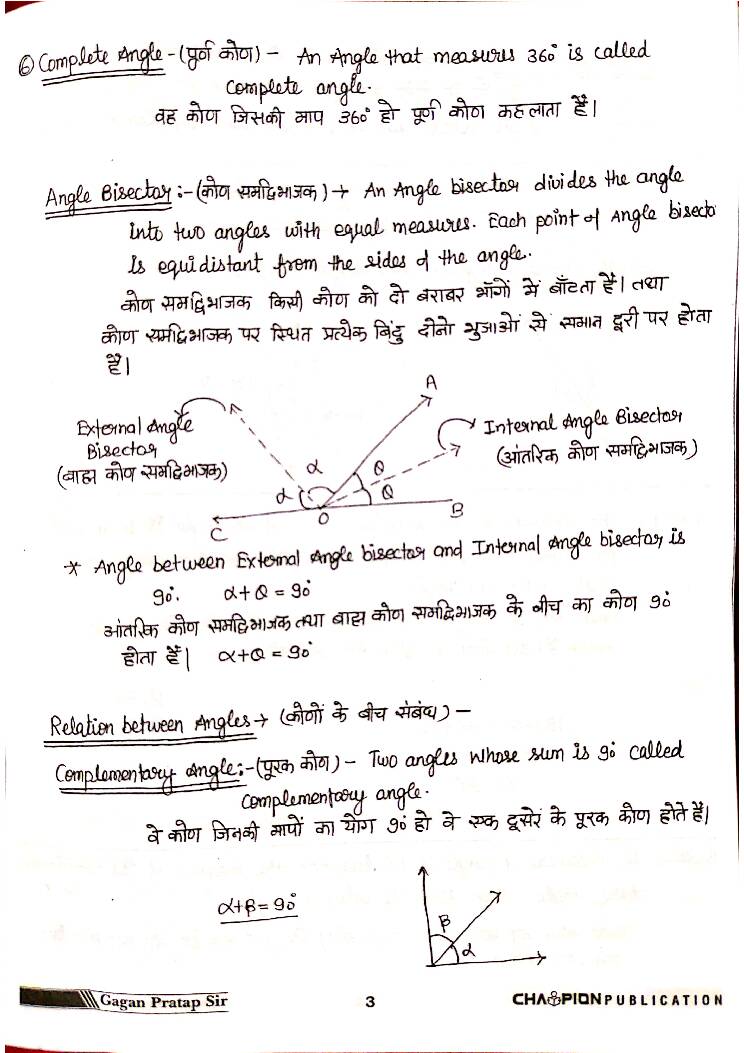 ⑥ Complete Angle - (पूर्ण कोण) - An Angle that measures 360° is called
complete angle.
वह कोण जिसकी माप 360° हो पूर्ण कोण कहलाता हैं।
Angle Bisector :- (कोण समद्विभाजक) → An Angle bisector divides the angle
into two angles with equal measures. Each point of Angle bisecto
is equidistant from the sides of the angle.
कोण समद्विभाजक किसी कोण को दो बराबर भाँगों में बाँटता हैं। तथा
कोण समद्विभाजक पर स्थित प्रत्येक बिंदु दोनो भुजाओं से समान दूरी पर होता
हैं।
A
External Angle
Bisector
(बाह्य कोण समद्विभाजक)
Internal Angle Bisector
(आंतरिक कोण समद्विभाजक)
α θ
α θ
C O B
* Angle between External Angle bisector and Internal Angle bisector is
90°. α+θ = 90°
आंतरिक कोण समद्विभाजक तथा बाह्य कोण समद्विभाजक के बीच का कोण 90°
होता हैं| α+θ = 90°
Relation between Angles → (कोणों के बीच संबंध) -
Complementary Angle:- (पूरक कोण) - Two angles whose sum is 90° called
complementary angle.
वे कोण जिनकी मापों का योग 90° हो वे एक दूसरें के पूरक कोण होते हैं।
α+β = 90°
β
α
Gagan Pratap Sir 3 CHAMPION PUBLICATION